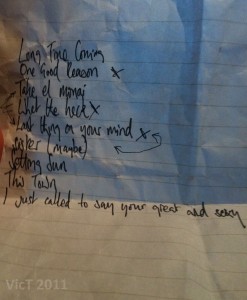 Long Time Coming
One Good Reason x
- Take el
- What the heck x
- Last thing on your mind x
(maybe)
Setting Sun
This Town
I just called to say your great and sexy
VicT 2011